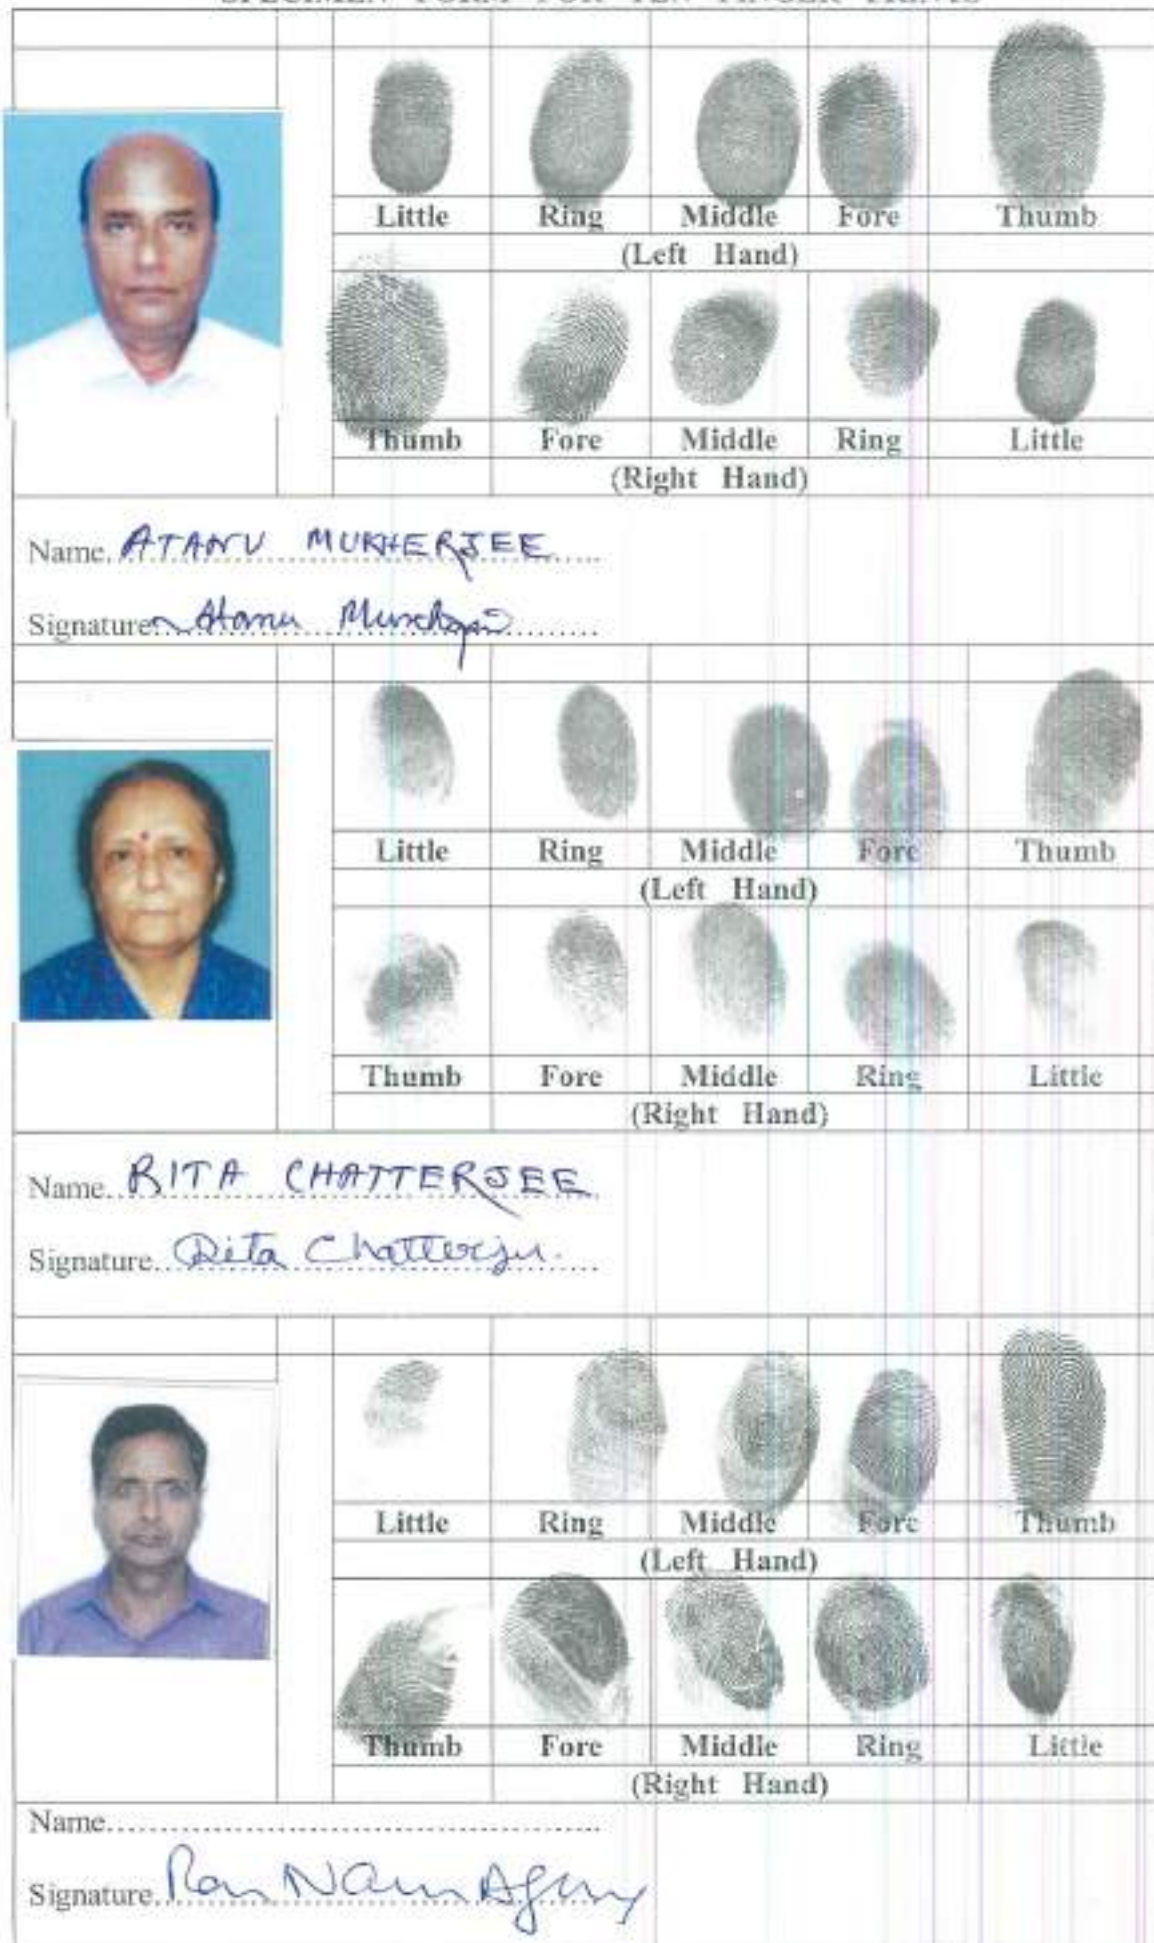 SPECIMEN FORM FOR TEN FINGER PRINTS
Little Ring Middle Fore Thumb
(Left Hand)
Thumb Fore Middle Ring Little
(Right Hand)
Name. ATANU MUKHERJEE
Signature
Little Ring Middle Fore Thumb
(Left Hand)
Thumb Fore Middle Ring Little
(Right Hand)
Name. RITA CHATTERJEE
Signature. Rita Chatterjee.
Little Ring Middle Fore Thumb
(Left Hand)
Thumb Fore Middle Ring Little
(Right Hand)
Name
Signature.